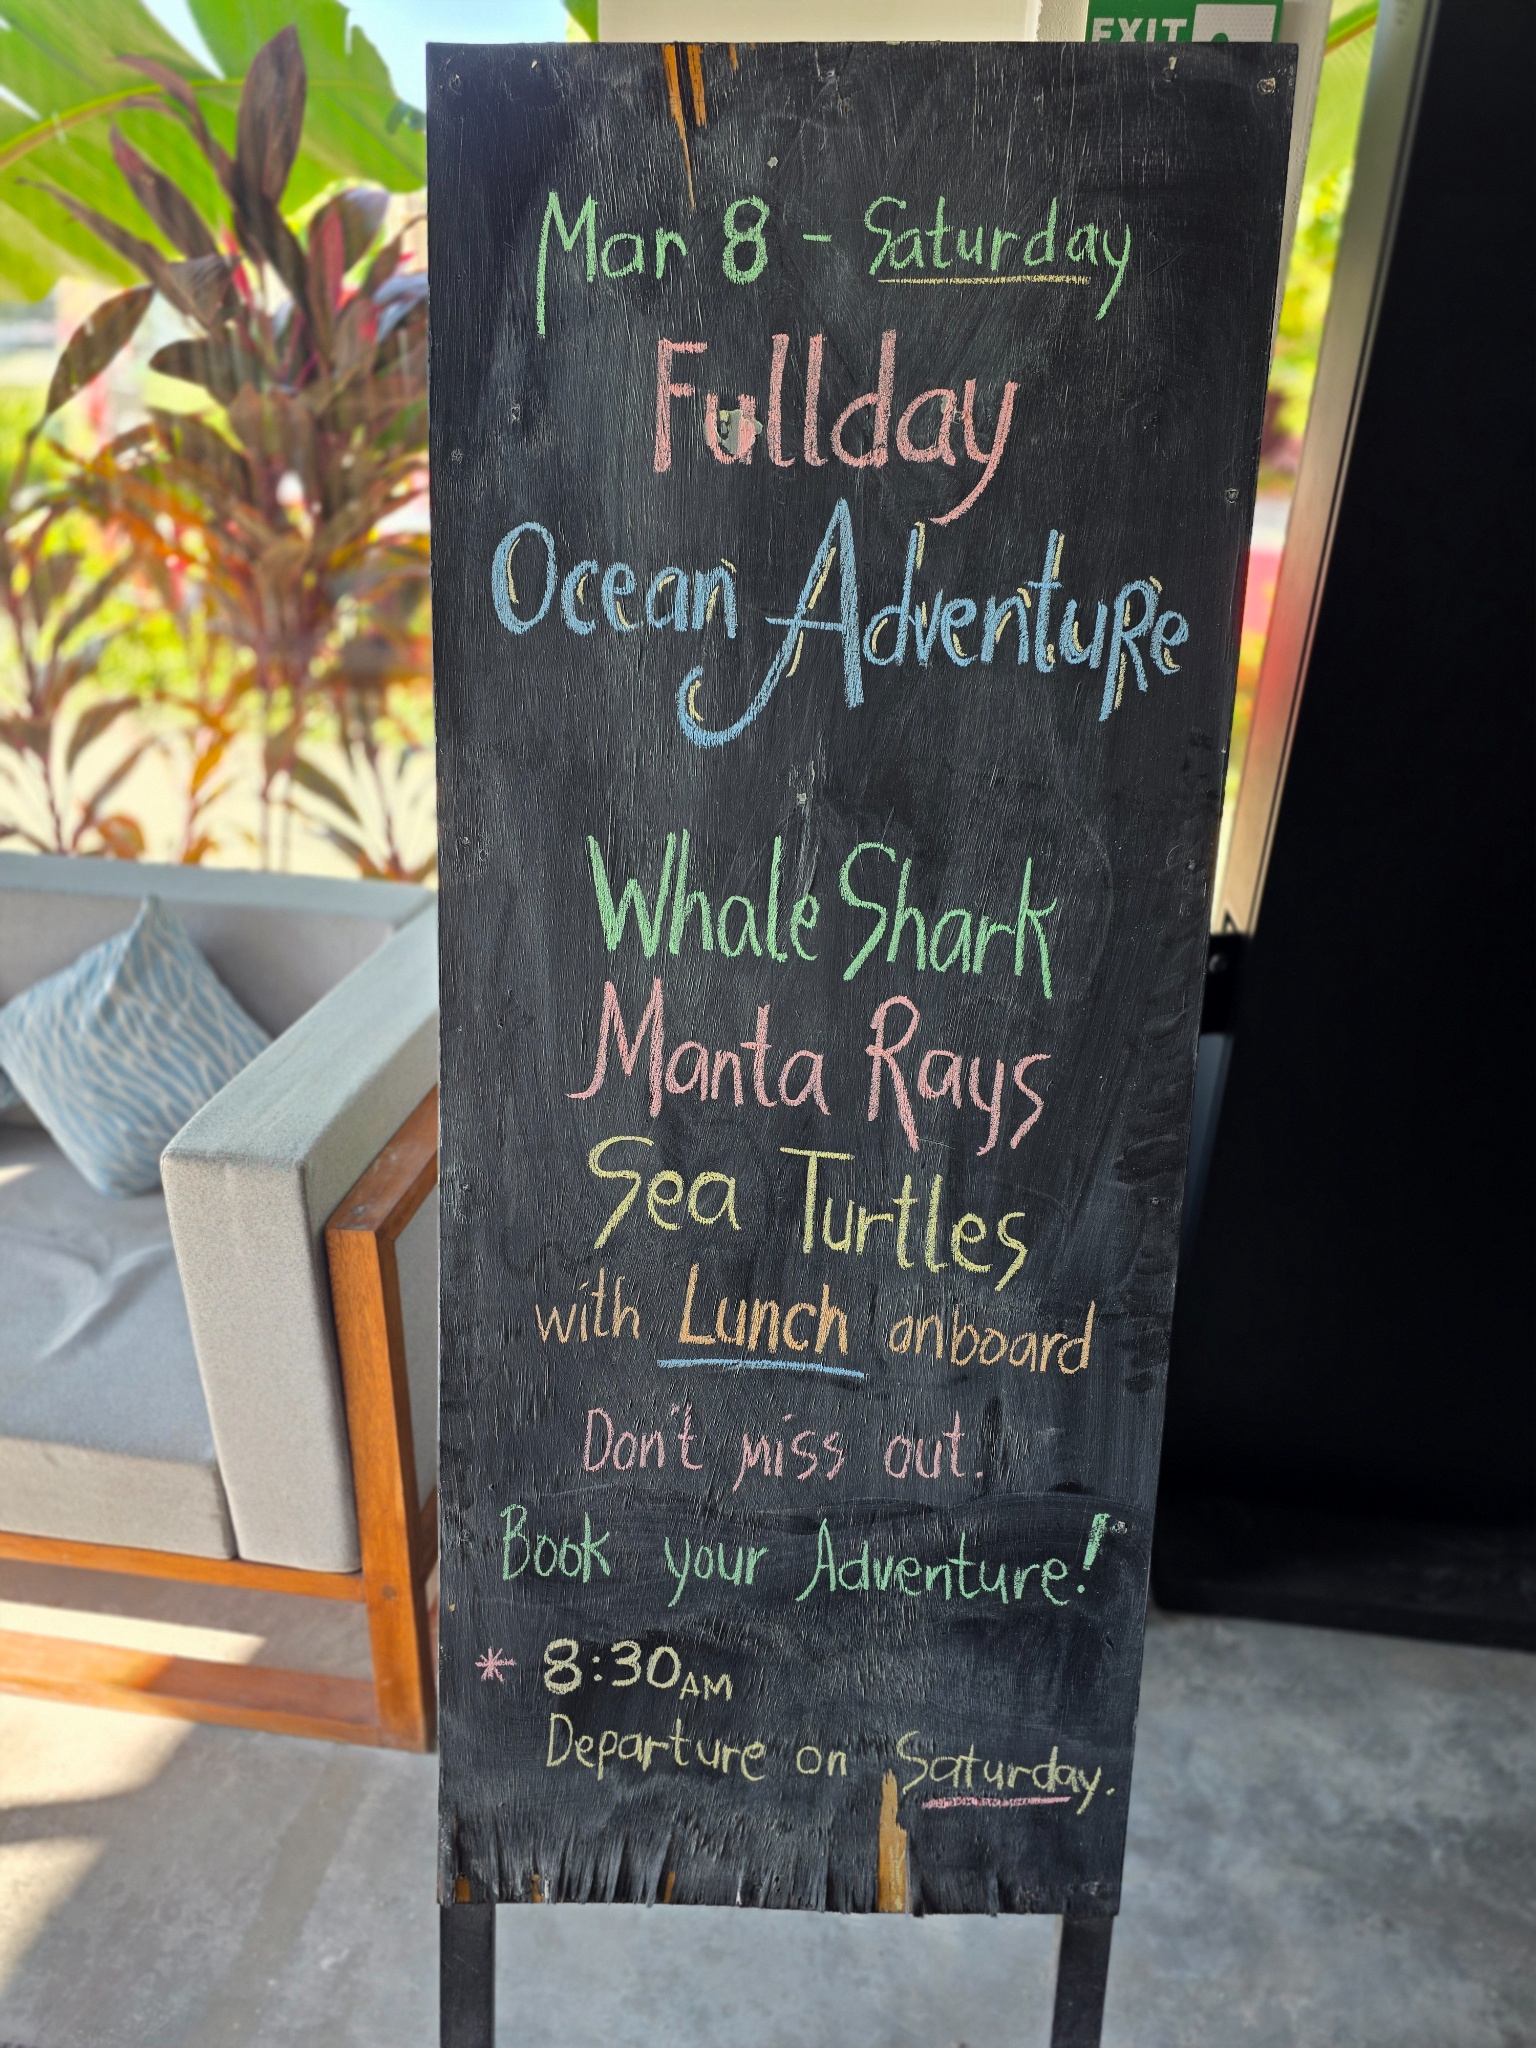 EXIT
Mar 8 - Saturday
Fullday
Ocean Adventure
Whale Shark
Manta Rays
Sea Turtles
with Lunch onboard
Don't miss out.
Book your Adventure!
* 8:30AM
Departure on Saturday.